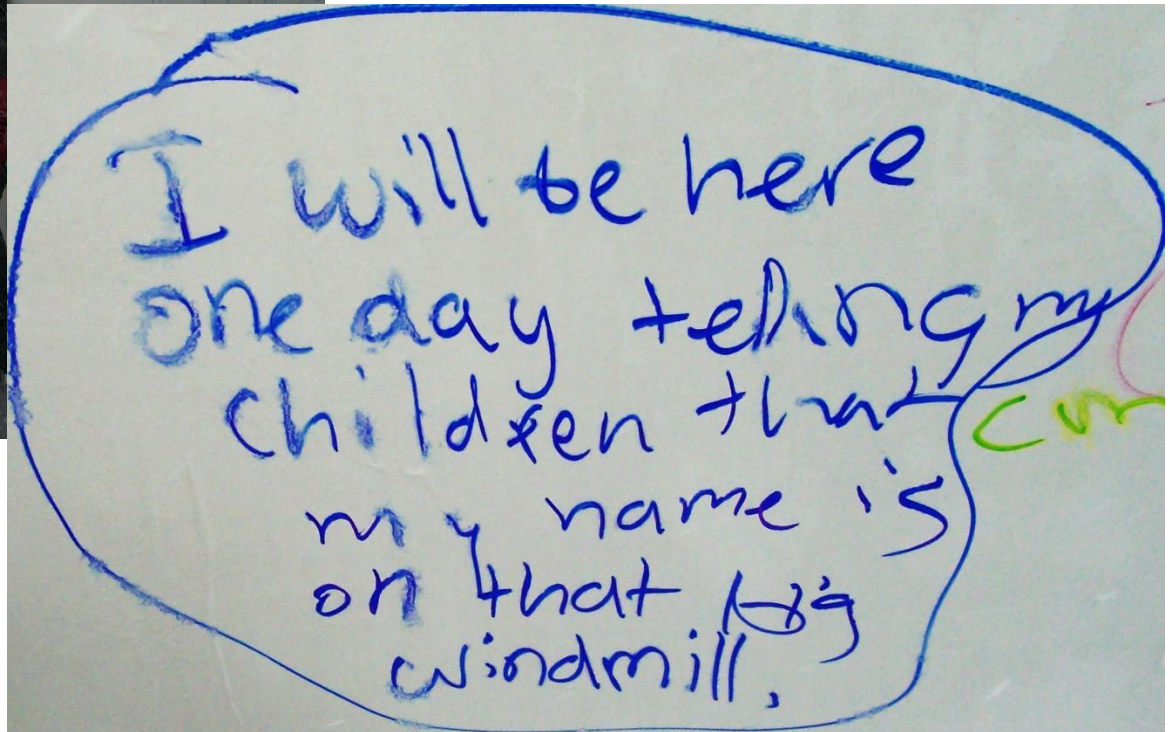 I will be here
one day telling my
children that
my name is
on that big
windmill.